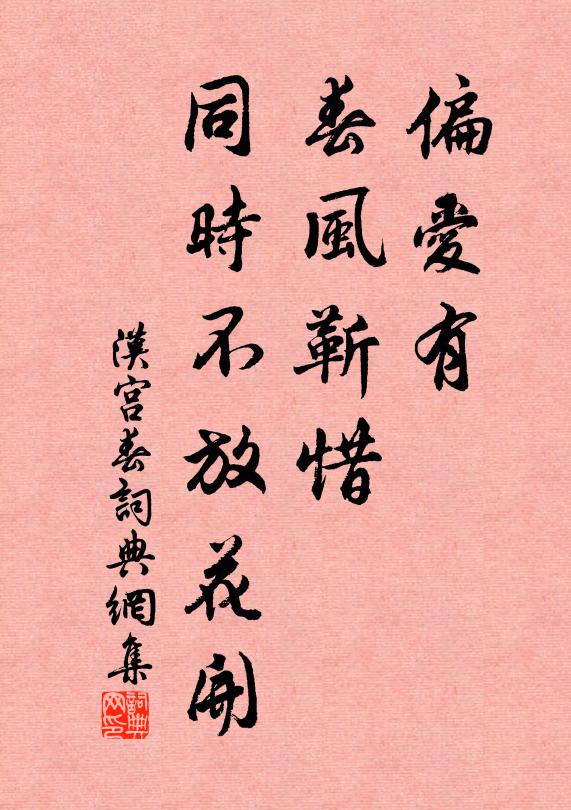 偏愛有
春風靳惜
同時不放花開
漢宮春詞典網集
詞典
网印